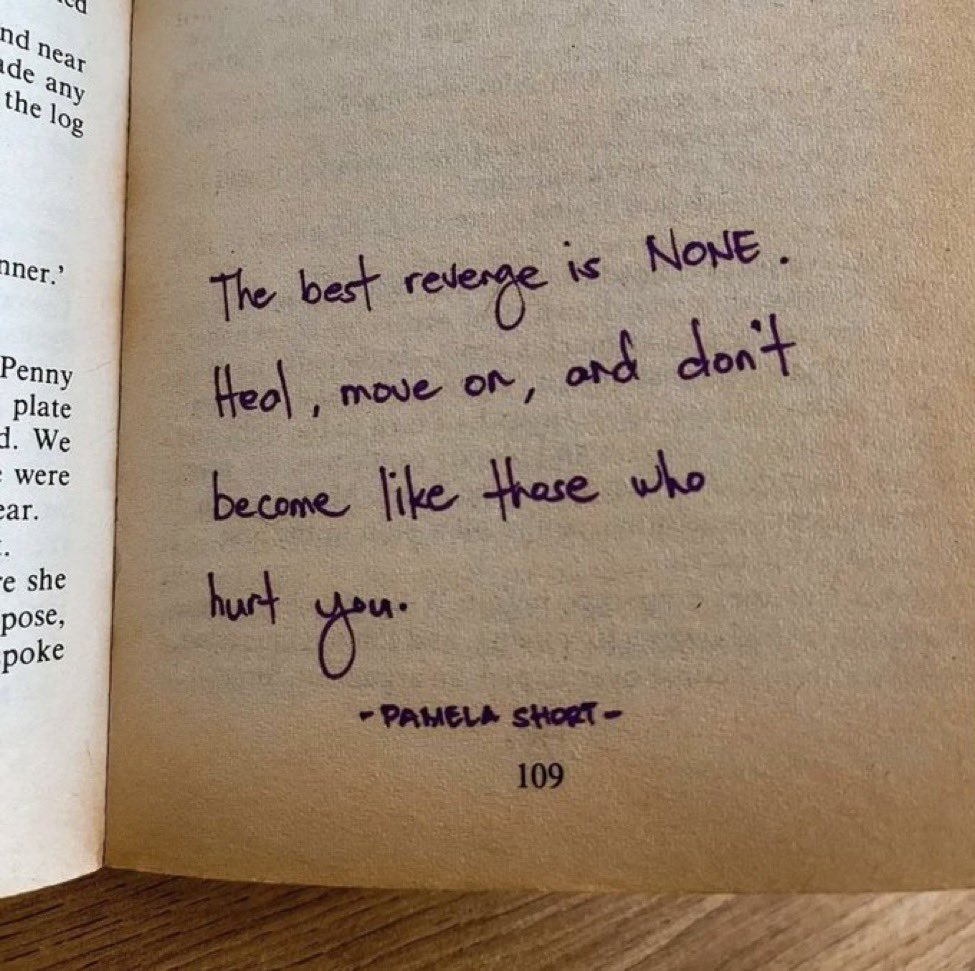 nd near
ade any
the log
nner.'
Penny
plate
d. We
were
ear.
e she
pose,
poke
The best revenge is NONE.
Heal, move on, and don't
become like those who
hurt you.
-PAMELA SHORT-
109